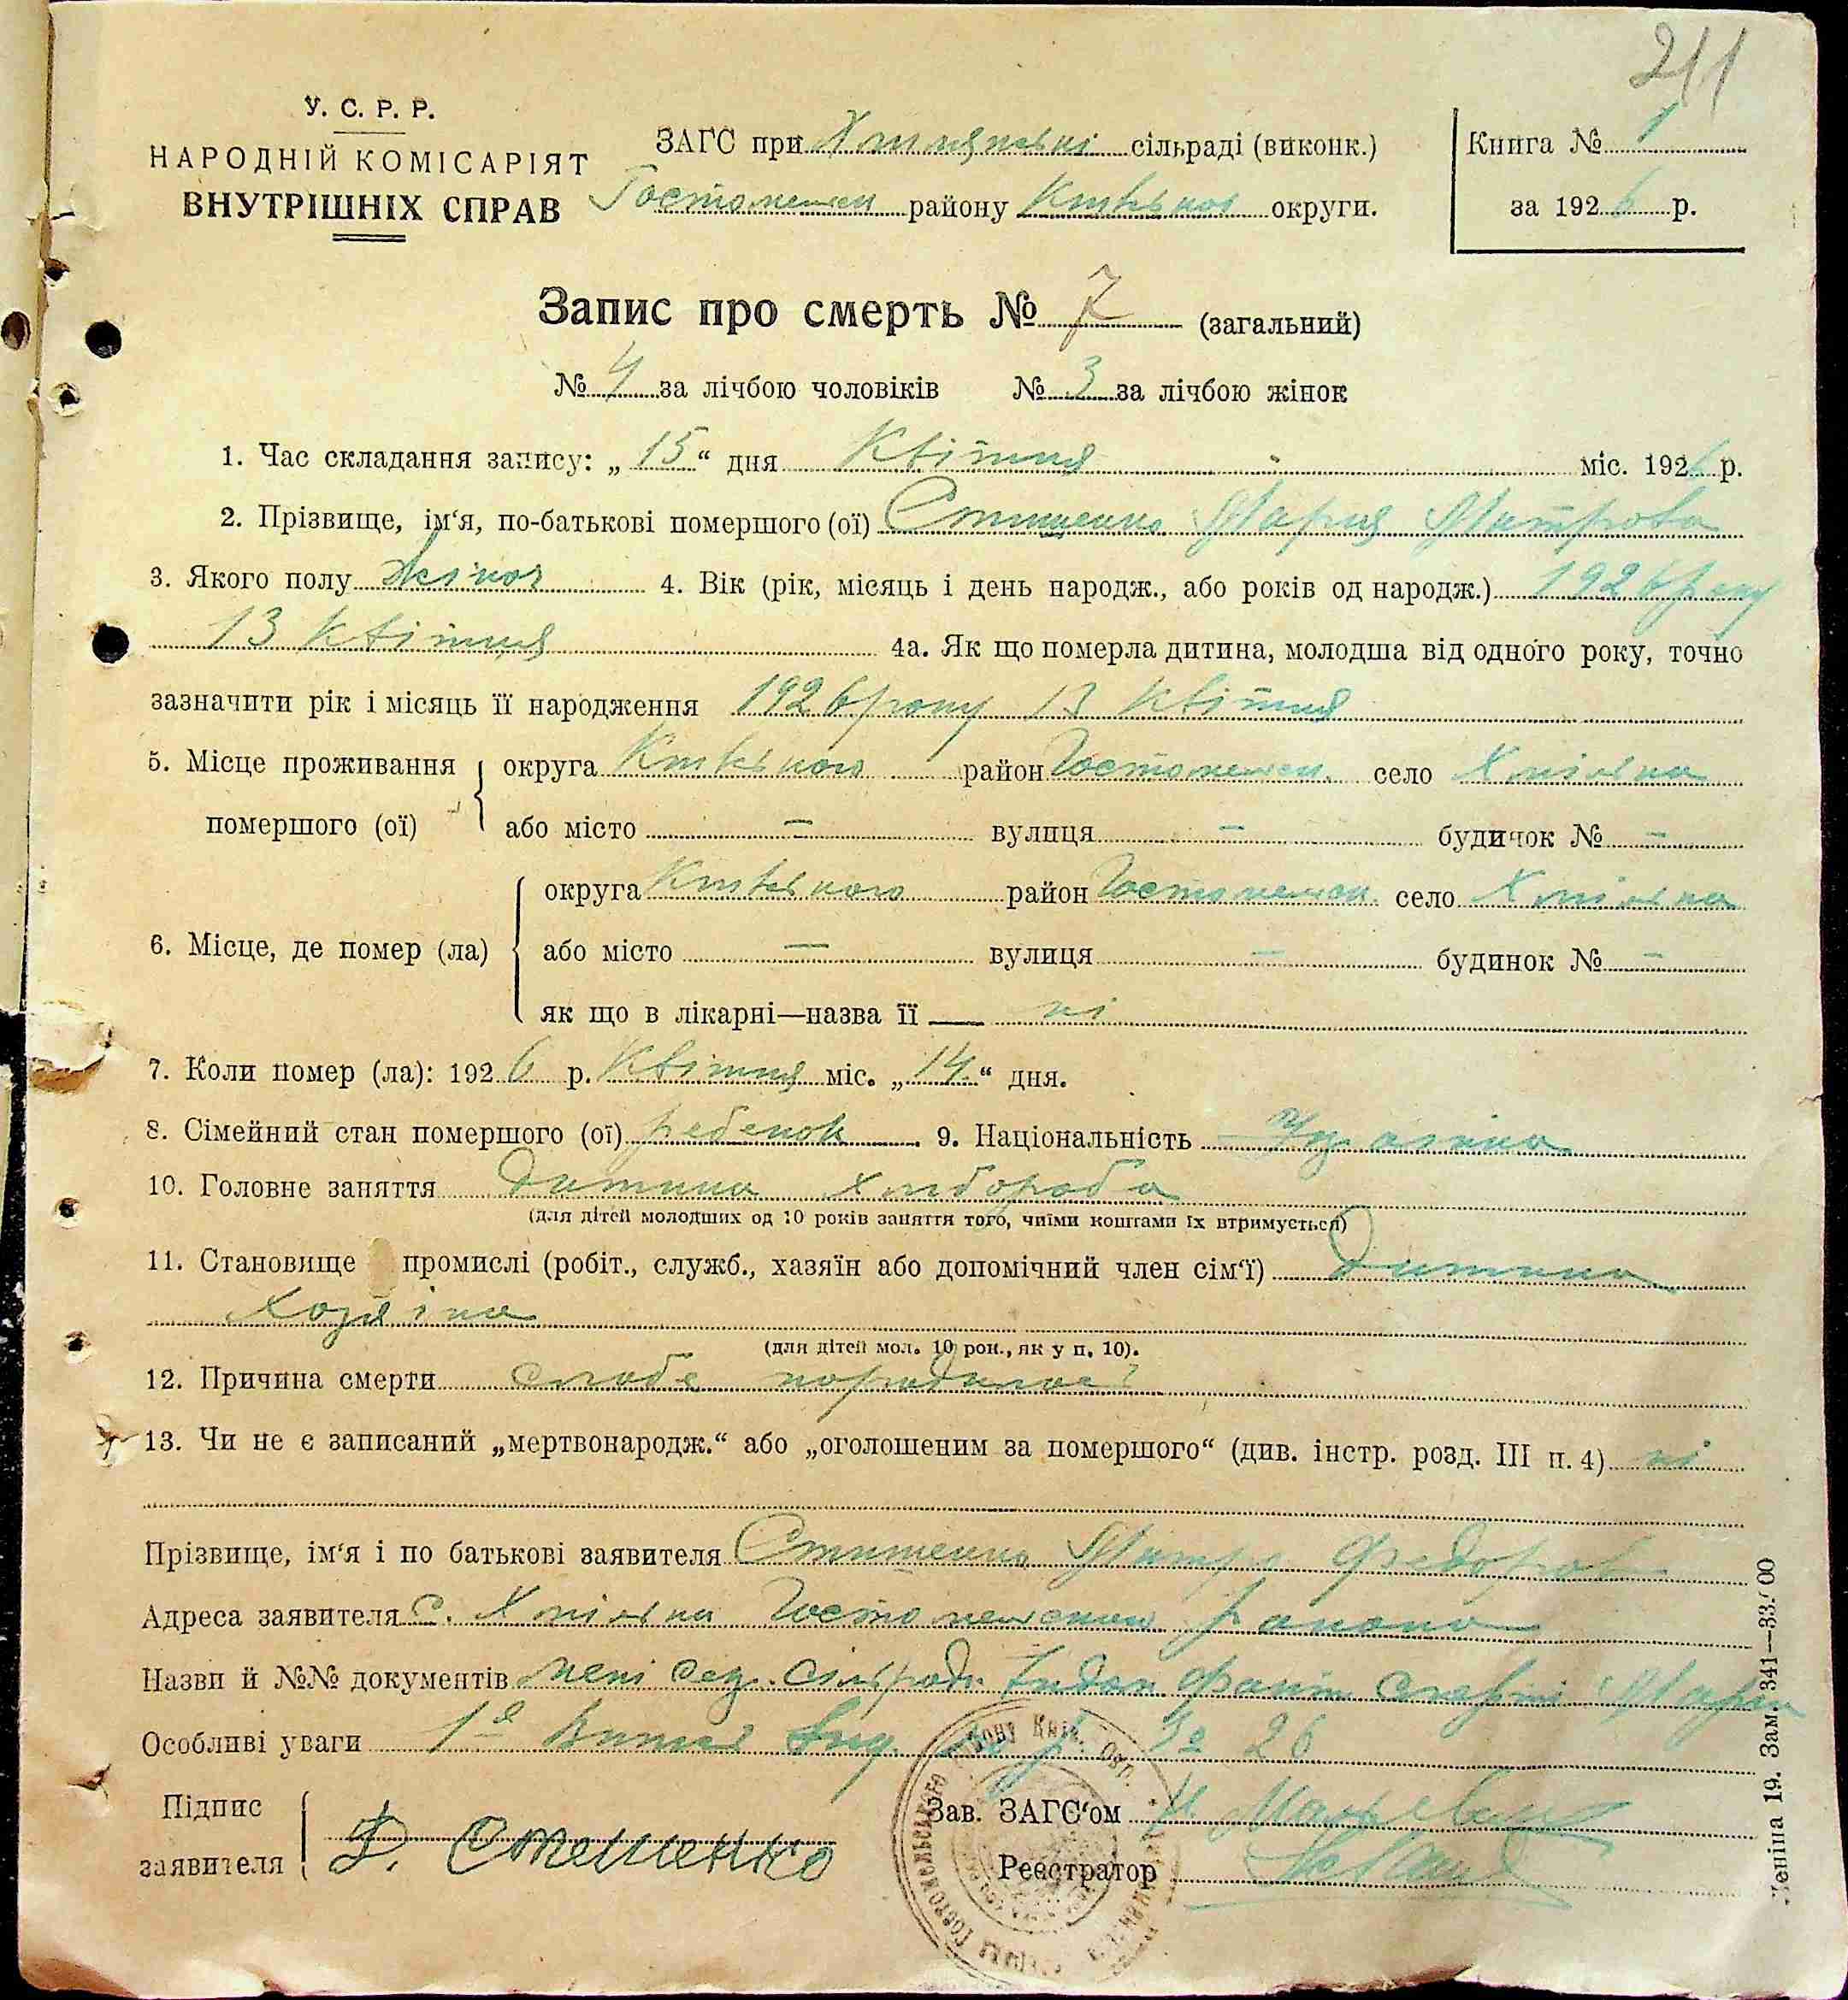 211
У. С. Р. Р.
НАРОДНІЙ КОМІСАРІЯТ
ВНУТРІШНІХ СПРАВ
ЗАГС при сільраді (виконк.)
Гостомельськ району Київської округи.
Книга № 1
за 1926 р.
Запис про смерть № 7 (загальний)
№ 4 за лічбою чоловіків № 3 за лічбою жінок
1. Час складання запису: „ 15 “ дня Квітня міс. 1926 р.
2. Прізвище, ім‘я, по-батькові помершого (ої) Стишенко Мария Митрова
3. Якого полу жіноч 4. Вік (рік, місяць і день народж., або років од народж.) 1926 року
13 квітня 4а. Як що померла дитина, молодша від одного року, точно
зазначити рік і місяць її народження 1926 року 13 квітня
5. Місце проживання округа район Гостомельськ. село
помершого (ої) або місто — вулиця — будинок № —
6. Місце, де помер (ла) округа район Гостомельськ. село
або місто — вулиця — будинок № —
як що в лікарні—назва її — ні
7. Коли помер (ла): 1926 р. Квітня міс. „ 14 “ дня.
8. Сімейний стан помершого (ої) ребенок 9. Національність
10. Головне заняття Дитина хлібороба
(для дітей молодших од 10 років заняття того, чиїми коштами їх втримується)
11. Становище промислі (робіт., служб., хазяїн або допомічний член сім‘ї) Дитина
Хозяіна
(для дітей мол. 10 рок., як у п. 10).
12. Причина смерти слабе
13. Чи не є записаний „мертвонародж.“ або „оголошеним за помершого“ (див. інстр. розд. III п. 4) ні
Прізвище, ім‘я і по батькові заявителя Стишенко Митро Федоров
Адреса заявителя с. району
Назви й №№ документів
Особливі уваги 26
Підпис
заявителя Стешенко
Зав. ЗАГС‘ом
Реєстратор
Леніна 19. Зам. 341—33